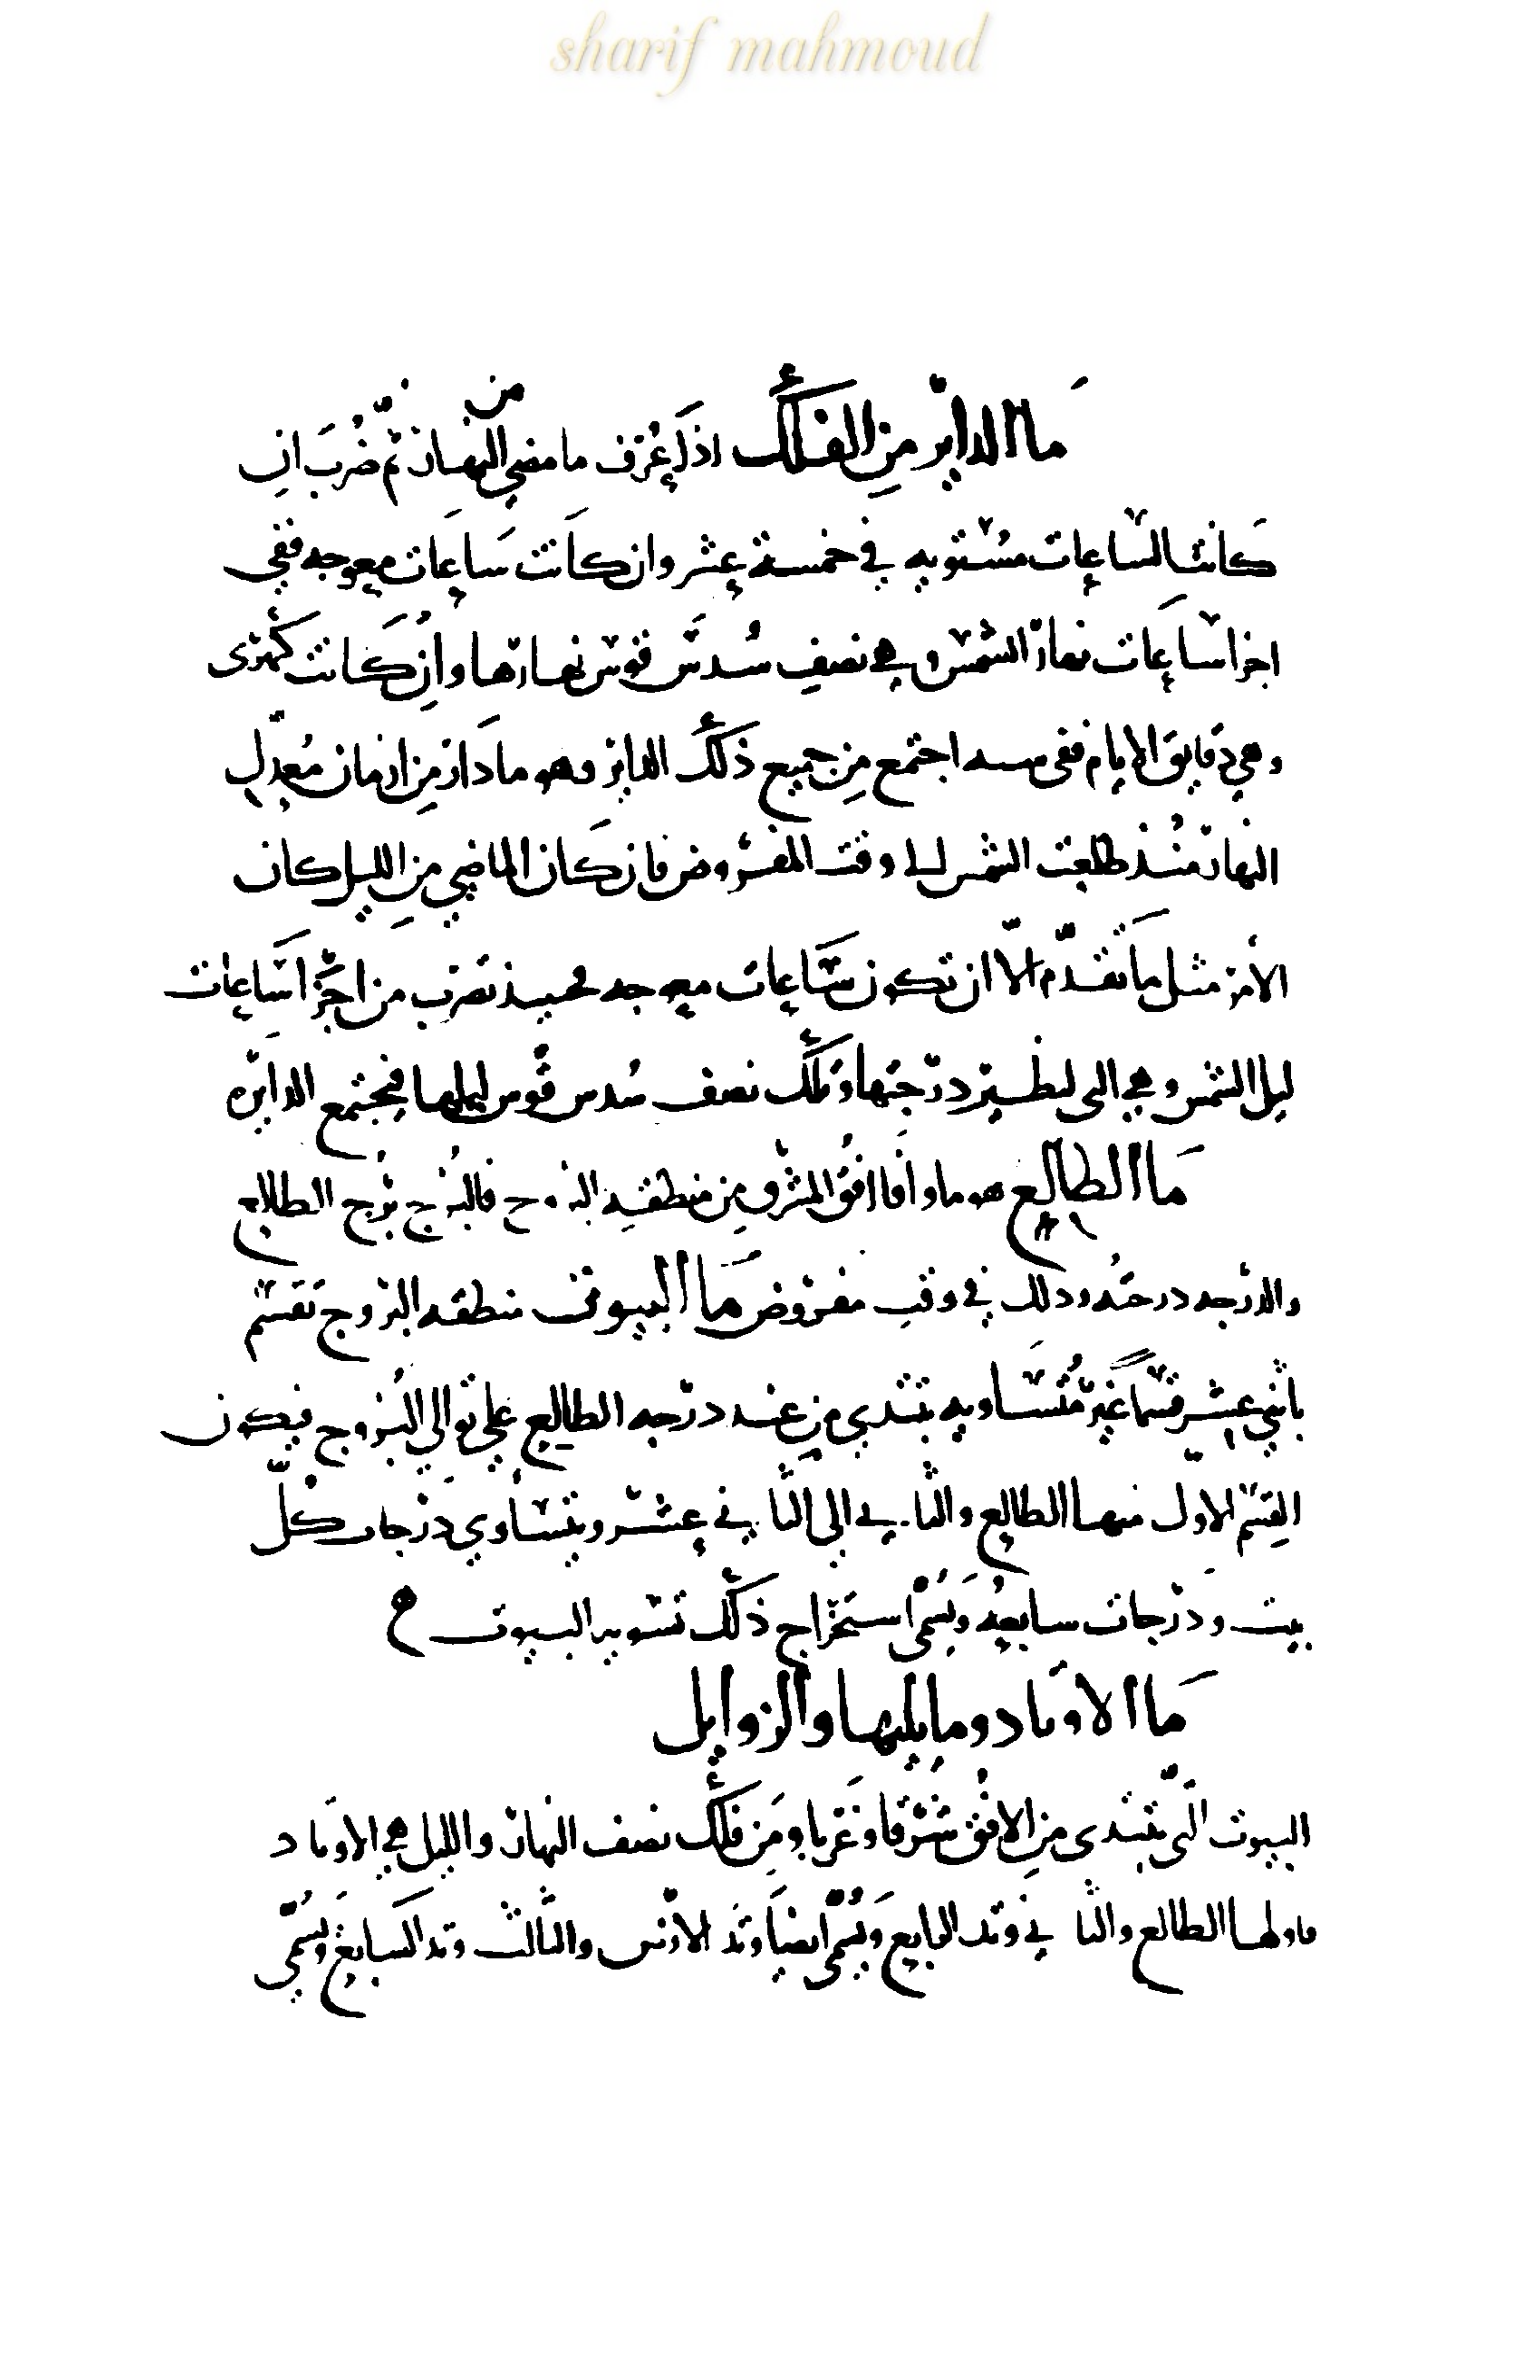 sharif mahmoud
ما الداير من الفلك اذا عرف ما مضى من النهار ثم ضرب ان
كانت الساعات مستويه في خمسة عشر وان كانت ساعات معوجه ففي
اجزا ساعات نهار الشمس وهي نصف سدس قوس نهارها وان كانت كهرى
وهي دقايق الايام ففي سته اجتمع من جميع ذلك الداير وهو ما دار من ازمان معدل
النهار منذ طلعت الشمس الى وقت المفروض فان كان الماضي من الليل كان
الأمر مثل ما تقدّم الّا ان تكون ساعات معوجه فحينيذ تضرب من اجزا ساعات
ليل الشمس وهي التى لنظير درجتها وتلك نصف سدس قوس ليلها فيجتمع الدايره
ما الطالع هو ما وافا افق المشرق من منطقه البروج فالبرج برج الطالع
والدرجه درجته وذلك في وقت مفروض ما البيوت منطقه البروج تقسم
باثني عشر قسما غير متساويه تبتدي من عند درجه الطالع على توالي البروج فيكون
القسم الاول منها الطالع والثاني الى الثاني عشر ويتساوي درجات كلّ
بيت ودرجات سابعه ويسمى استخراج ذلك تسويه البيوت
ما الاوتاد وما يليها والزوايل
البيوت التي تبتدى من الافق شرقا وغربا ومن فلك نصف النهار والليل هي الاوتاد
فاولها الطالع والثاني وتد الرابع ويسمى ايضا وتد الارض والثالث وتد السابع ويسمى